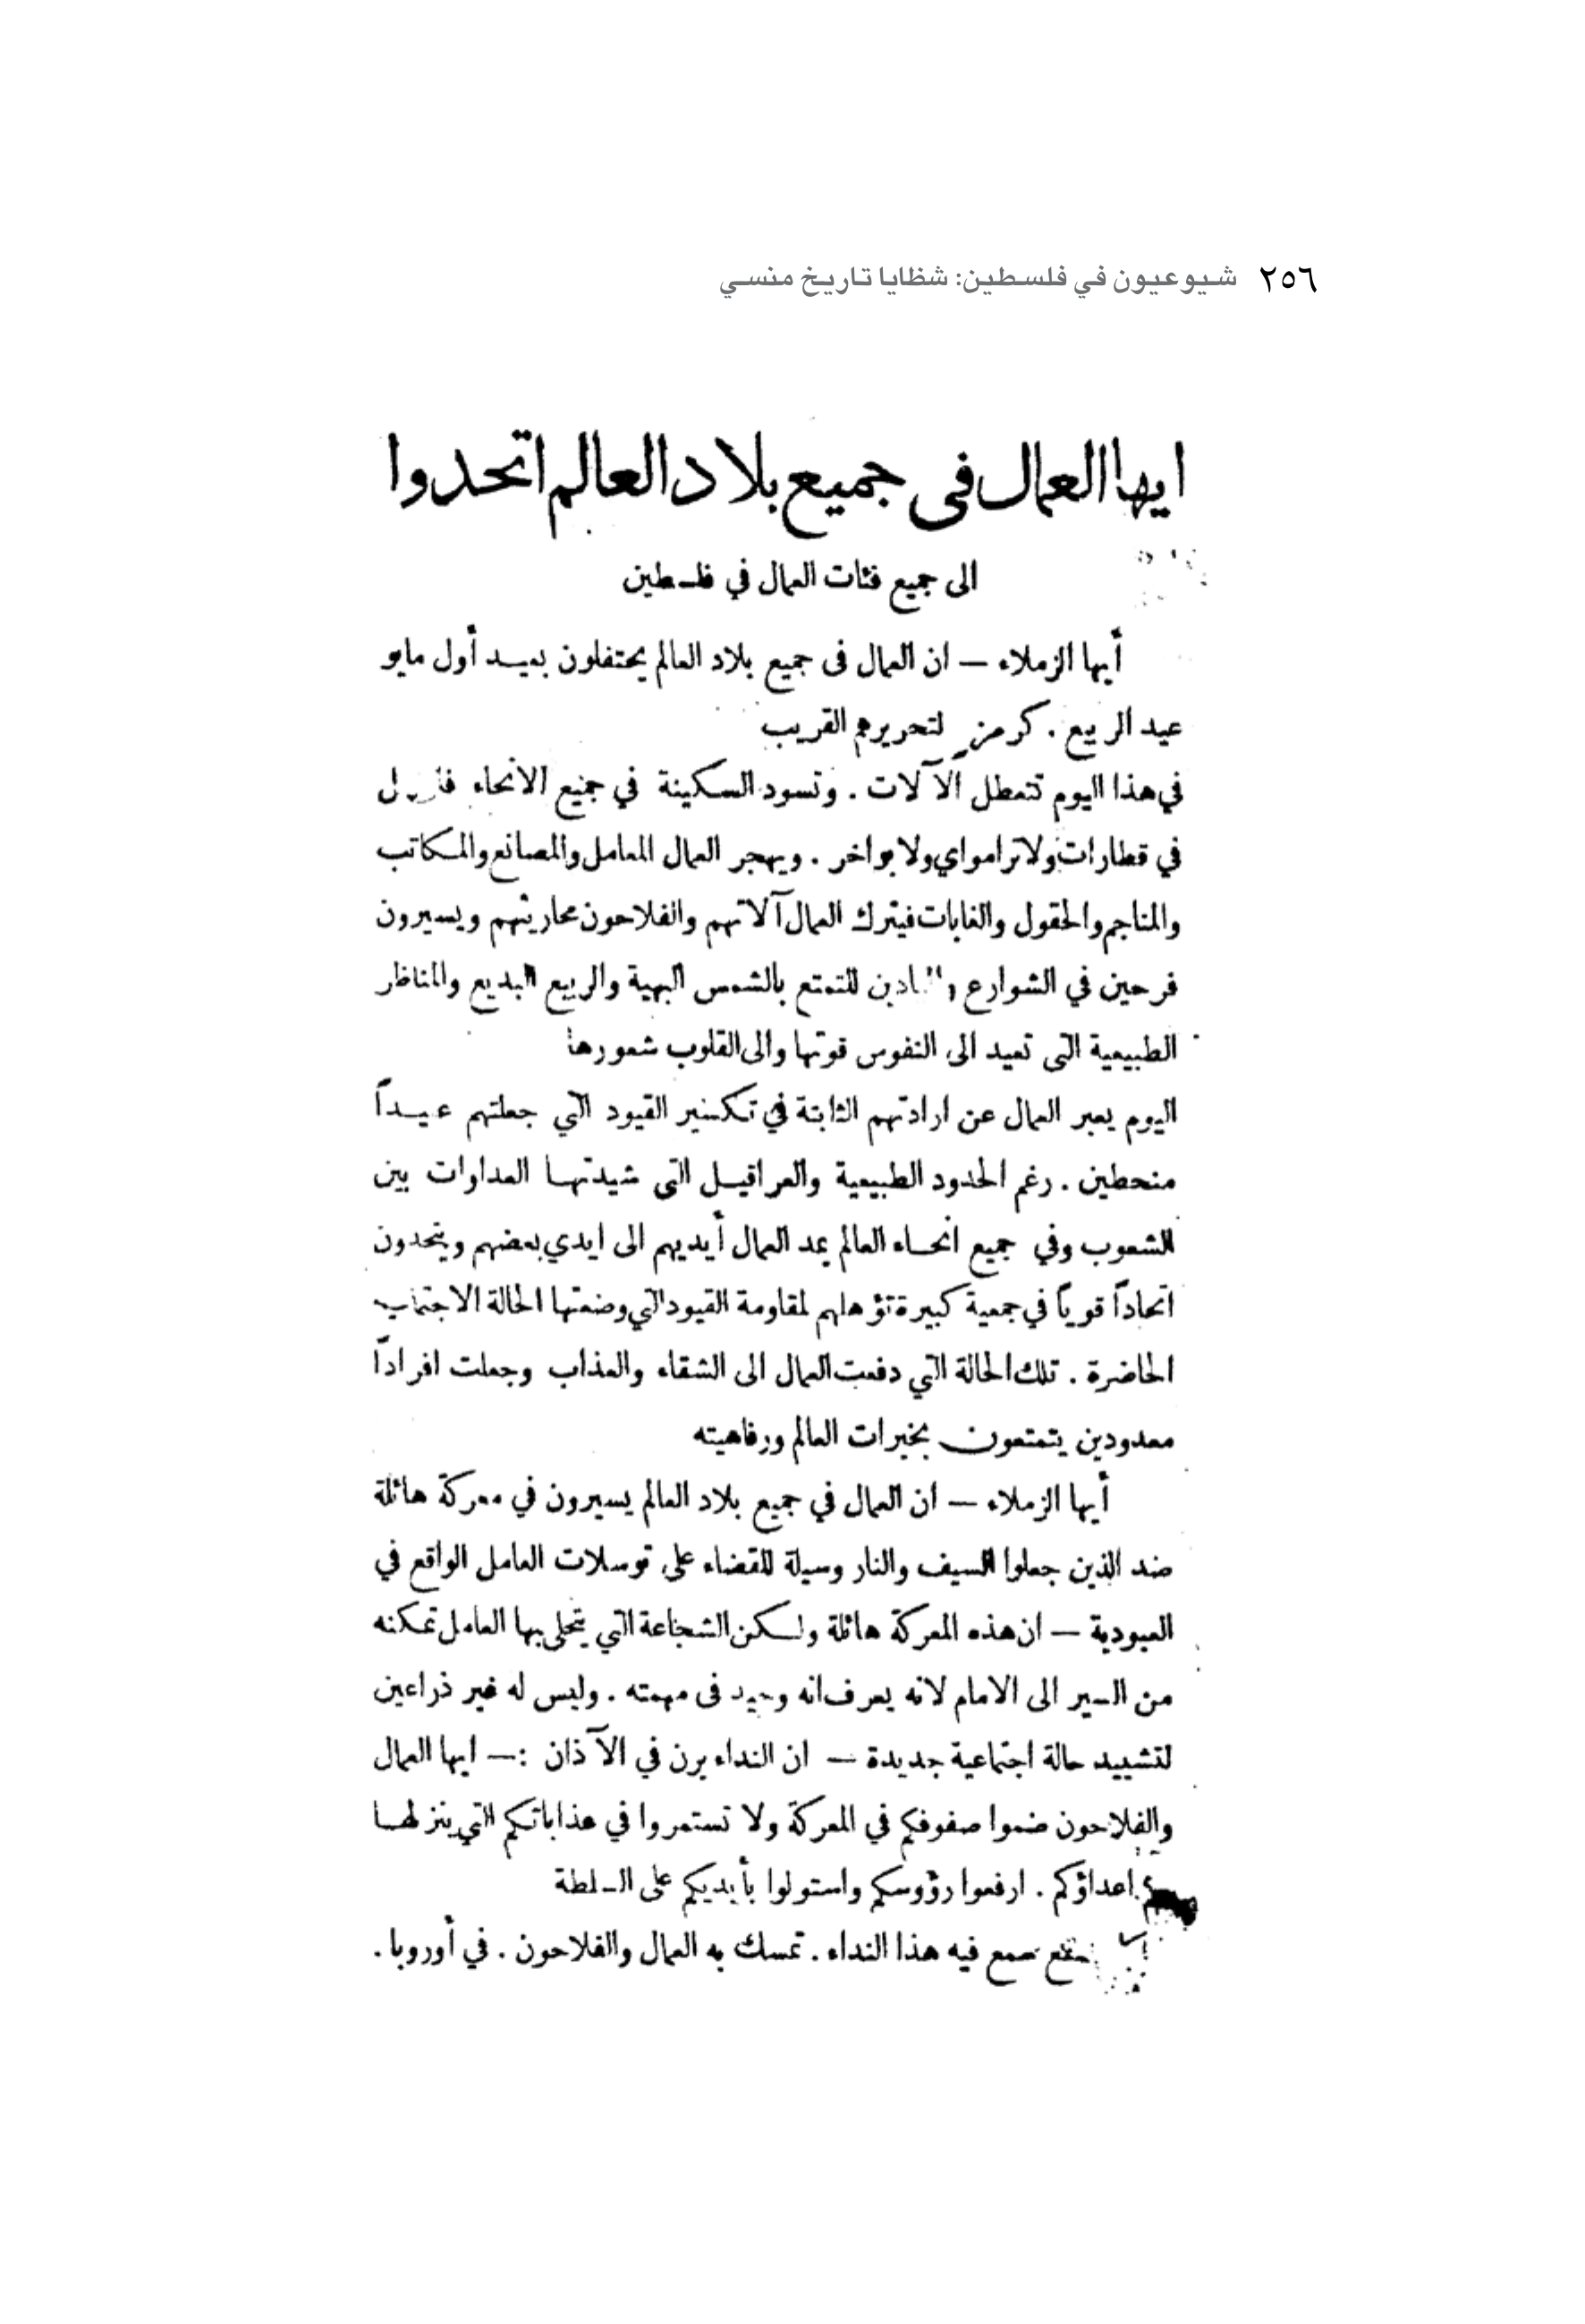 ٢٥٦ شيوعيون في فلسطين: شظايا تاريخ منسي
ايها العمال فى جميع بلاد العالم اتحدوا
الى جميع فئات العمال في فلسطين
أيها الزملاء — ان العمال فى جميع بلاد العالم يحتفلون بعيد أول مايو
عيد الربيع . كرمز لتحريرهم القريب
في هذا اليوم تتعطل الآلات . وتسود السكينة في جميع الانحاء
في قطارات ولا ترامواي ولا بواخر . ويهجر العمال المعامل والمصانع والمكاتب
والمناجم والحقول والغابات فيترك العمال آلاتهم والفلاحون محاريثهم ويسيرون
فرحين في الشوارع للتمتع بالشمس البهية والربيع البديع والمناظر
الطبيعية التى تعيد الى النفوس قوتها والى القلوب شعورها
اليوم يعبر العمال عن ارادتهم الثابتة في تكسير القيود التي جعلتهم عبيداً
منحطين . رغم الحدود الطبيعية والعراقيل التى شيدتها العداوات بين
الشعوب وفي جميع انحاء العالم يمد العمال أيديهم الى ايدي بعضهم ويتحدون
اتحاداً قوياً في جمعية كبيرة تؤهلهم لمقاومة القيود التي وضعتها الحالة الاجتماعية
الحاضرة . تلك الحالة التي دفعت العمال الى الشقاء والعذاب وجعلت افراداً
معدودين يتمتعون بخيرات العالم ورفاهيته
أيها الزملاء — ان العمال في جميع بلاد العالم يسيرون في معركة هائلة
ضد الذين جعلوا السيف والنار وسيلة للقضاء على توسلات العامل الواقع في
العبودية — ان هذه المعركة هائلة ولكن الشجاعة التي يتحلى بها العامل تمكنه
من السير الى الامام لانه يعرف انه وحيد فى مهمته . وليس له غير ذراعين
لتشييد حالة اجتماعية جديدة — ان النداء يرن في الآذان :— ايها العمال
والفلاحون ضموا صفوفكم في المعركة ولا تستمروا في عذاباتكم التي ينزلها
اعداؤكم . ارفعوا رؤوسكم واستولوا بأيديكم على السلطة
سمع فيه هذا النداء . تمسك به العمال والفلاحون . في أوروبا .